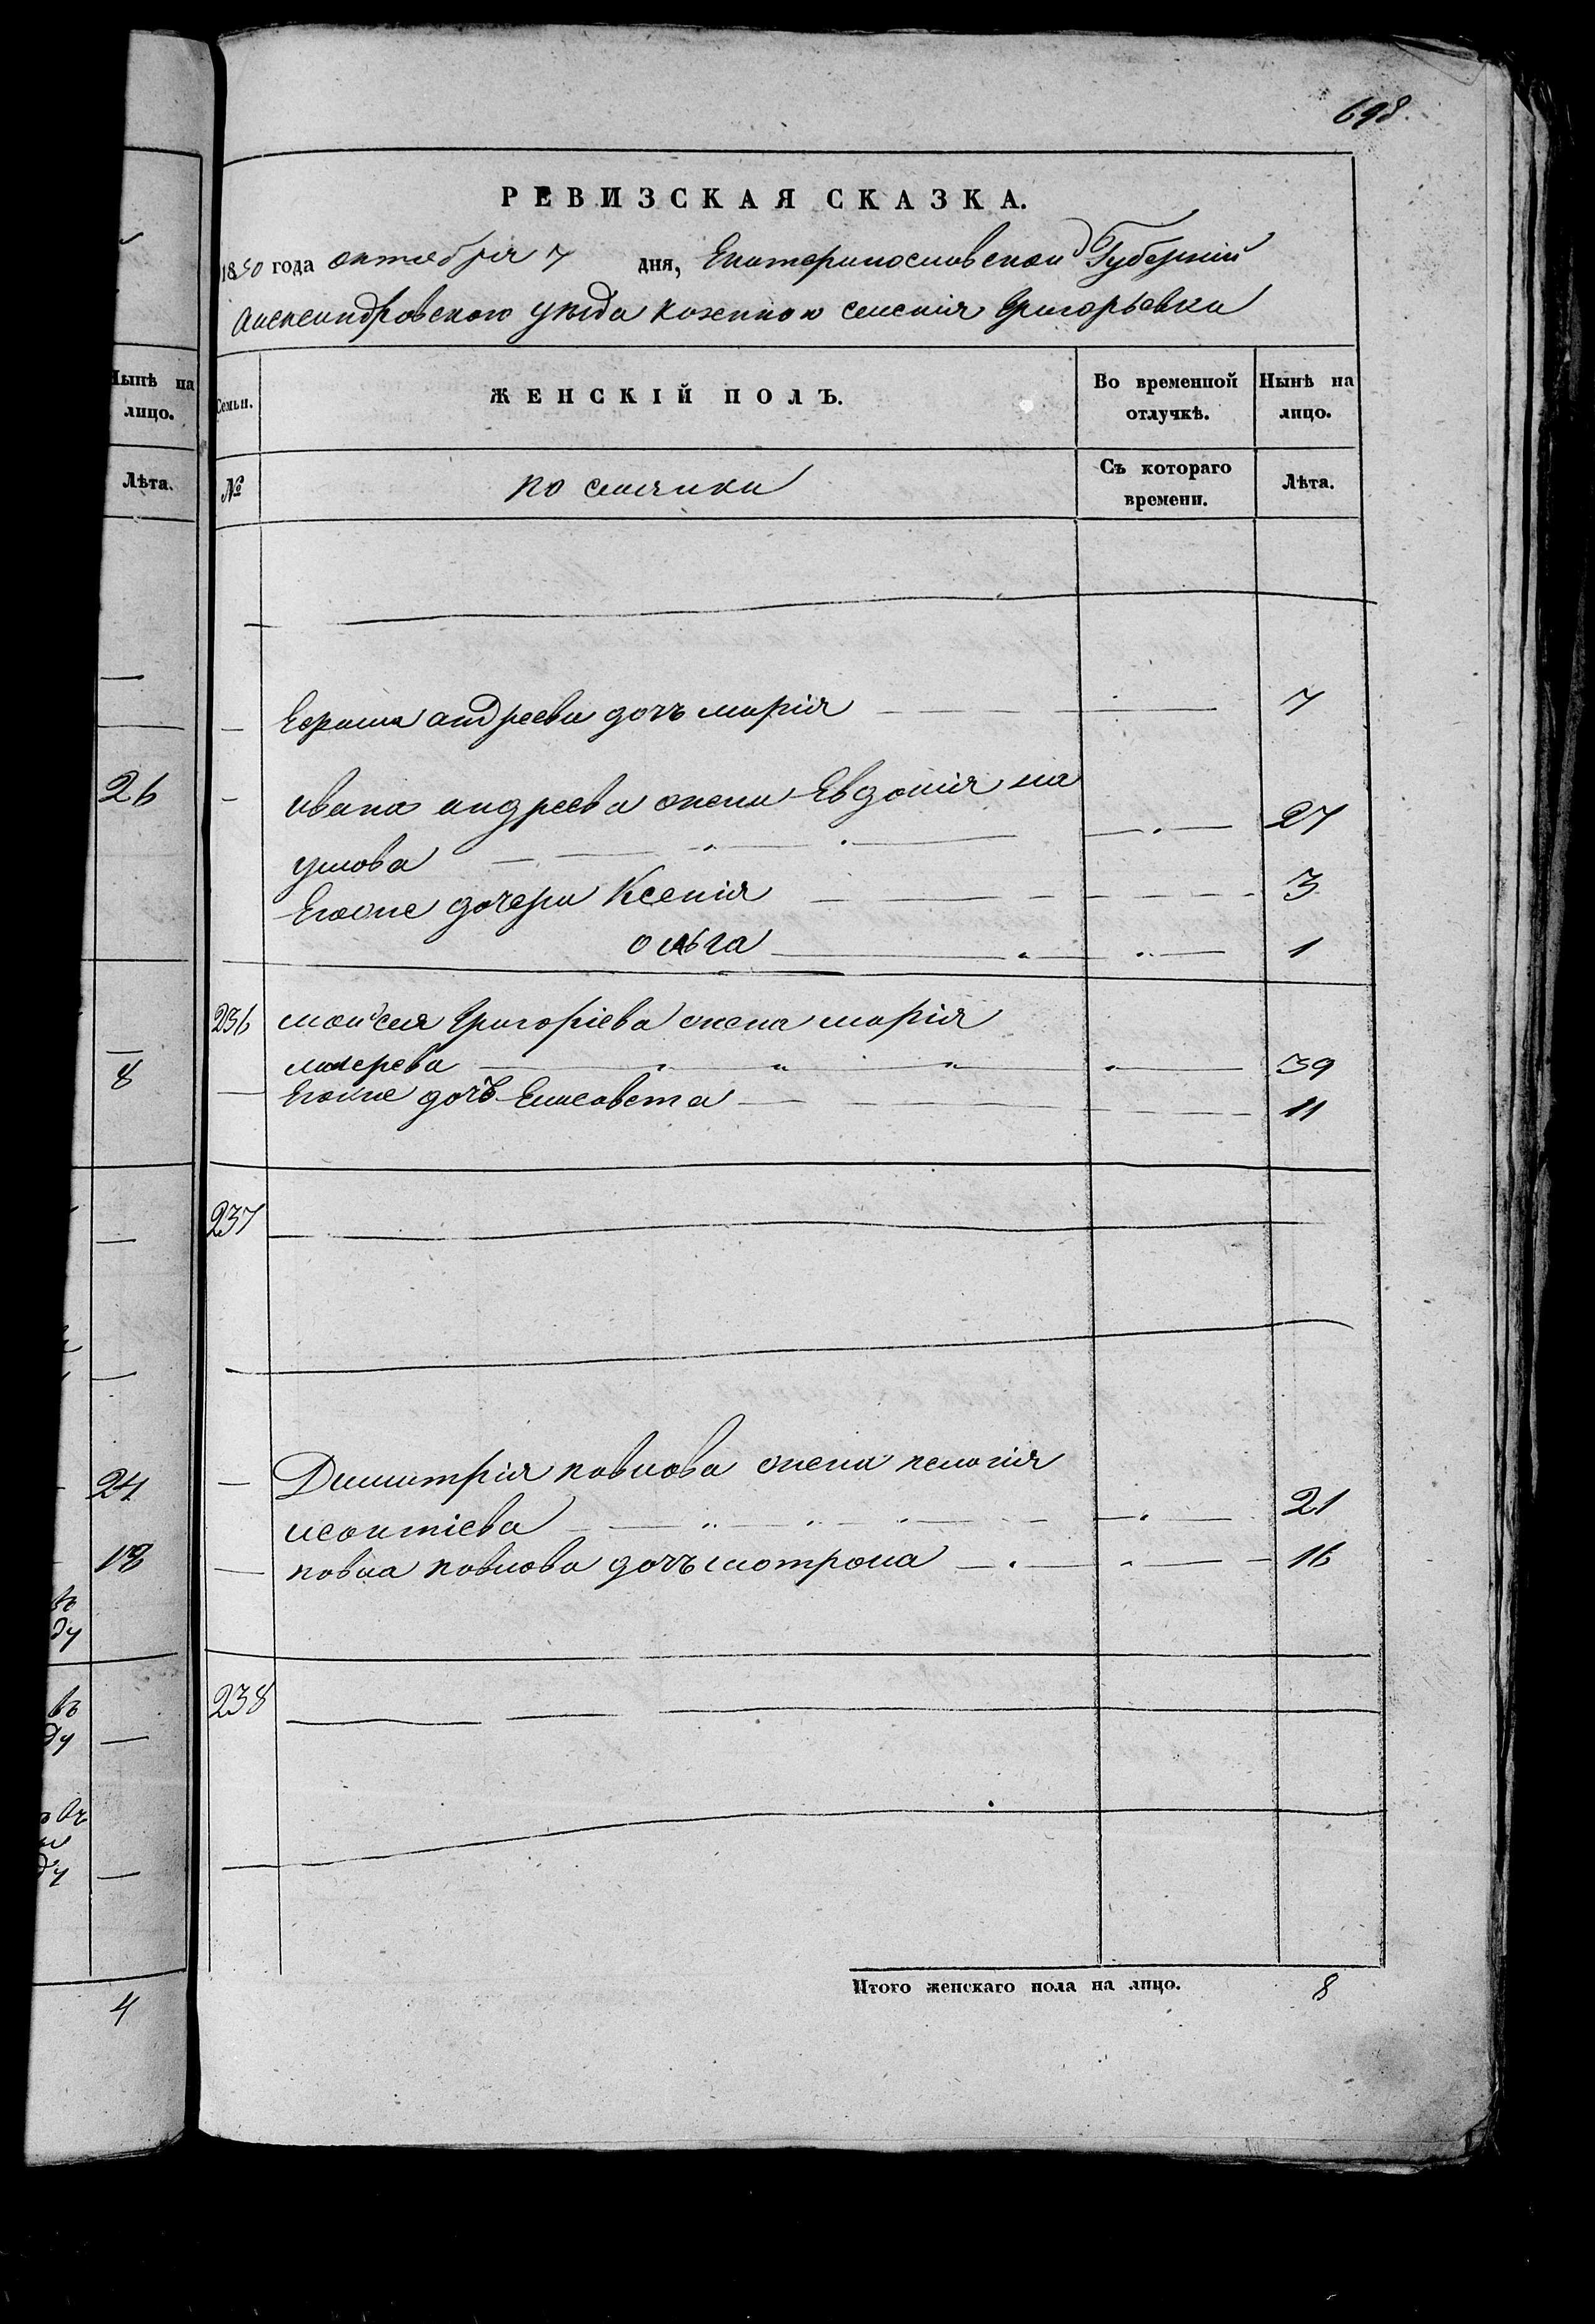 698.
РЕВИЗСКАЯ СКАЗКА.
1850 года октября 7 дня, Екатеринославской Губерніи
Александровского уезда казенного селенія Григорьевки
Нынѣ на
лицо.
Семьи.
ЖЕНСКІЙ ПОЛЪ.
Во временной
отлучкѣ.
Нынѣ на
лицо.
Лѣта.
№
Съ котораго
времени.
Лѣта.
андреева дочъ марія 7
26
ивана андреева жена Евдокія на
умова 27
Егоже дочери Ксенія 3
олга 1
236 моисея Григоріева жена марія
39
8
Егоже дочъ Елисавета 11
237
Димитрія павлова жена пелагія
24
леонтіева 21
18
павла павлова дочъ матрона 16
238
Итого женскаго пола на лицо. 8
4